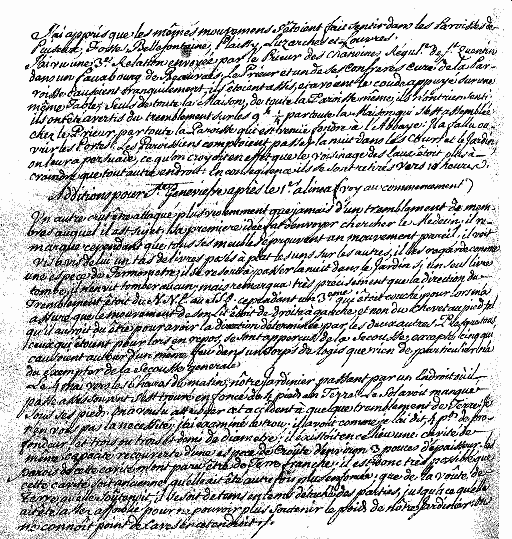 J'ai appris que les mêmes mouvemens s'étoient fait sentir dans les Paroisses de
Puiseux, Fosse, Bellefontaine, Plailly, Luzarches et Louvres.
J'ai eu une 3e. Relation envoyée par le Prieur des Chanoines Régulrs. de St. Quentin
dans un fauxbourg de Beauvais. Le Prieur et un de ses Confreres Curé de la Par-
roisse causoient tranquilement, ils étoient assis, et avoient le coude appuyé sur une
même Table; Seuls de toute la Maison, de toute la Paroisse même, ils n'ont rien senti:
ils ont été avertis du tremblement sur les 9h par toute la Maison qui s'est assemblée
chez le Prieur, par toute la Paroisse qui est venüe fondre à l'Abbaye: il a fallu ou-
vrir les Portes. Les Paroissiens comptoient passer la nuit dans les Cours et le Jardin,
on leur a persuadé, ce qu'on croyoit en effet que le voisinage des eaux étoit plus à
craindre que tout autre endroit. En conséquence ils se sont retirés vers 10 heures.
Additions pour Ste. Genevieve après le 1er. alinea (voy au commencement)
Un autre a été attaqué plus violemment que jamais d'un tremblement de mem-
bres auquel il est sujet, sa premiere idée fut d'envoyer chercher le Medecin, il re-
marqua cependant que tous ses meubles éprouvent un mouvement pareil: il voit
vis à vis de lui un tas de livres posés à plat les uns sur les autres, il les regarde comme
une espece de Termometre; il se resoud à passer la nuit dans le Jardin si un seul livre
tombe; il n'en vit tomber aucun; mais remarqua très précisement que la direction du
Tremblement étoit du N.N.E. au S.S.O. cependant une 3eme. qui étoit couché pour lors m'a
assuré que le mouvement de son lit étoit de droite à gauche, et non du chevet au pied, tel
qu'il auroit du être pour avoir la direction déterminée par les deux autres. Presque tous
ceux qui étoient pour lors en repos, se sont apperçus de la Secousse, excepté cinq qui
causoient autour d'un même feu dans un corps de logis que rien de particulier n'a
du exempter de la Secousse generale.
Le 4 mai vers les 6 heures du matin, nôtre Jardinier passant par un endroit où il
passe assés souvent s'est trouvé enfoncé de 4 pieds en Terre. Le Sol avoit manqué
sous ses pieds. On a voulu attribuer cet accident à quelque tremblement de Terre. Je
n'en vois pas la necessité; j'ai examiné le trou; il avoit comme je l'ai dit, 4 pds. de pro-
fondeur, et trois ou trois et demi de diametre; il existoit en ce lieu une cavité de
même capacité recouverte d'une espece de Croute d'environ 3 pouces d'épaisseur: les
parois de cette cavité m'ont paru être de Terre franche; il est donc très possible que
cette cavité soit ancienne; qu'elle ait été autrefois plus enfoncée; que de la voûte de
Terre qu'elle soutenoit, il se soit de tems en tems détaché des parties, jusqu'à ce qu'elle
ait été assez affoiblie pour ne pouvoir plus soutenir le poids de notre Jardinier qui
ne connoit point de Caves en cet endroit.